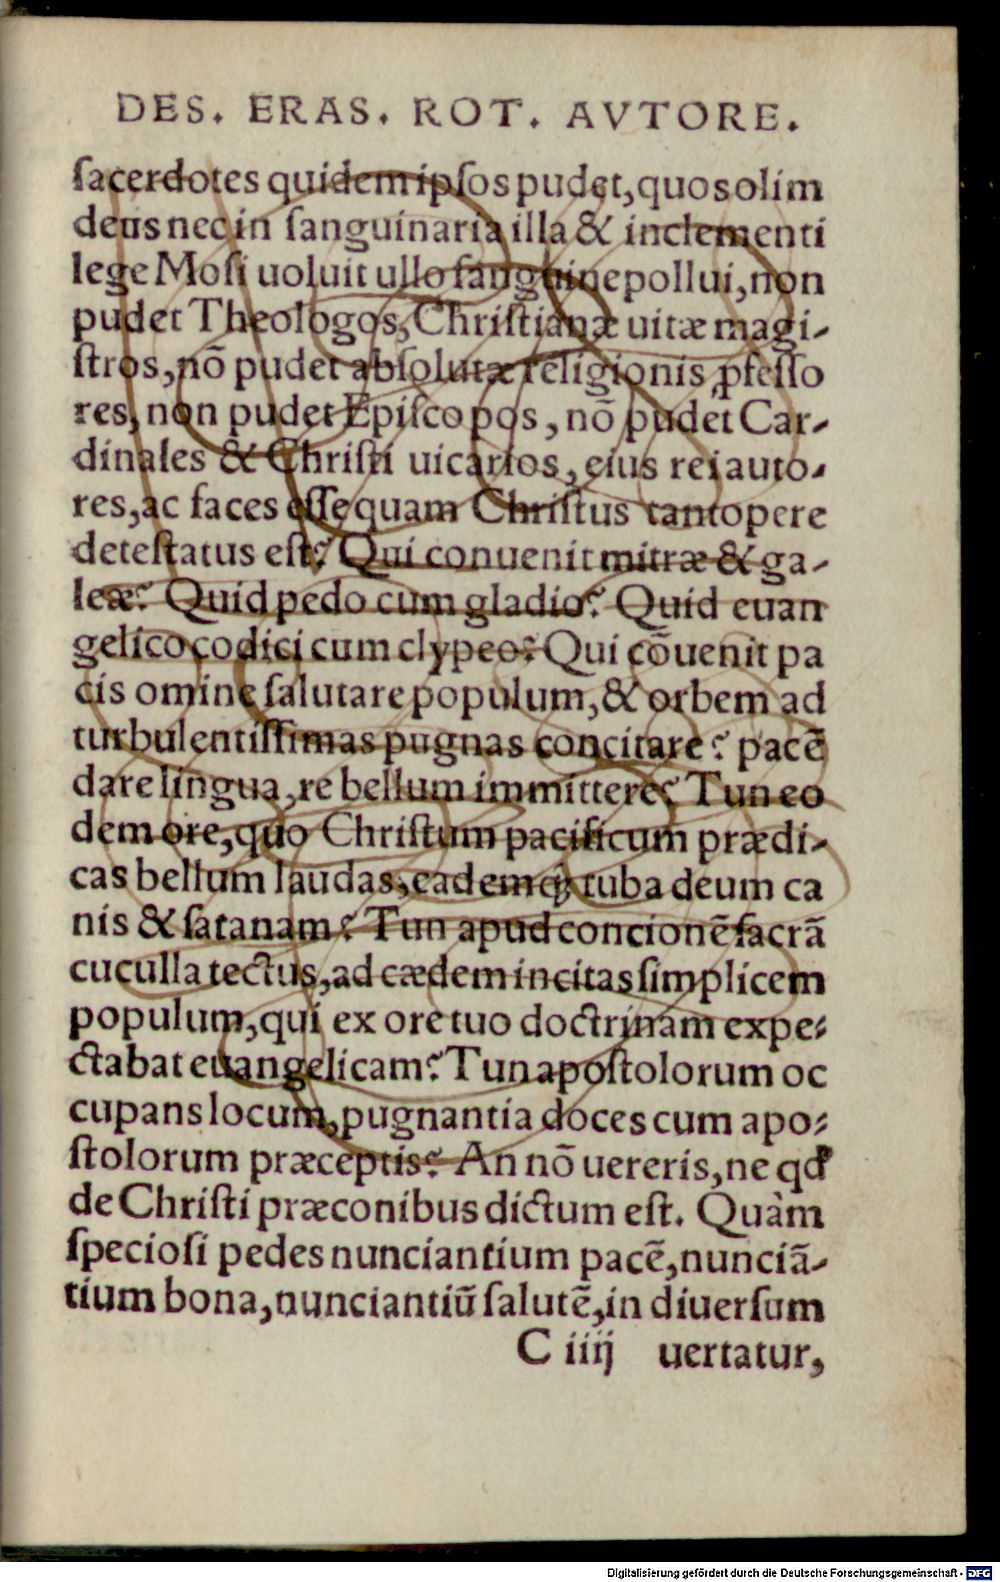 DES. ERAS. ROT. AVTORE.
ſacerdotes quidem ipſos pudet, quos olim
deus nec in ſanguinaria illa & inclementi
lege Moſi uoluit ullo ſanguine pollui, non
pudet Theologos, Chriſtianæ uitæ magi-
ſtros, nō pudet abſolutæ religionis ꝓfeſſo
res, non pudet Epiſcopos, nō pudet Car-
dinales & Chriſti uicarios, eius rei auto-
res, ac faces eſſe quam Chriſtus tantopere
deteſtatus eſt? Qui conuenit mitræ & ga-
leæ? Quid pedo cum gladio? Quid euan
gelico codici cum clypeo? Qui cōuenit pa
cis omine ſalutare populum, & orbem ad
turbulentiſſimas pugnas concitare? pacē
dare lingua, re bellum immittere? Tun eo
dem ore, quo Chriſtum pacificum prædi-
cas bellum laudas, eademqꝫ tuba deum ca
nis & ſatanam? Tun apud concionē ſacrā
cuculla tectus, ad cædem incitas ſimplicem
populum, qui ex ore tuo doctrinam expe-
ctabat euangelicam? Tun apoſtolorum oc
cupans locum, pugnantia doces cum apo-
ſtolorum præceptis? An nō uereris, ne qd
de Chriſti præconibus dictum eſt. Quàm
ſpecioſi pedes nunciantium pacē, nunciā-
tium bona, nunciantiū ſalutē, in diuerſum
C iiij uertatur,
Digitalisierung gefördert durch die Deutsche Forschungsgemeinschaft - DFG